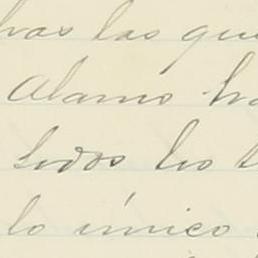 las que
Alamo
todos los
lo único